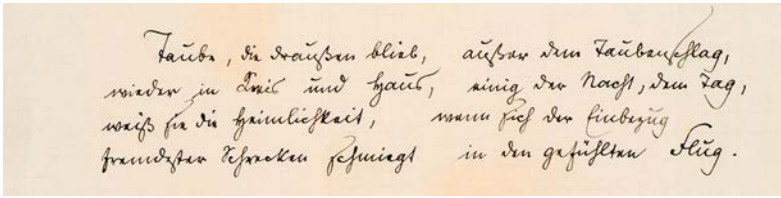 Taube, die draußen blieb, außer dem Taubenschlag,
wieder in Kreis und Haus, einig der Nacht, dem Tag,
weiß sie die Heimlichkeit, wenn sich der Einbezug
fremdester Schrecken schmiegt in den gefühlten Flug.